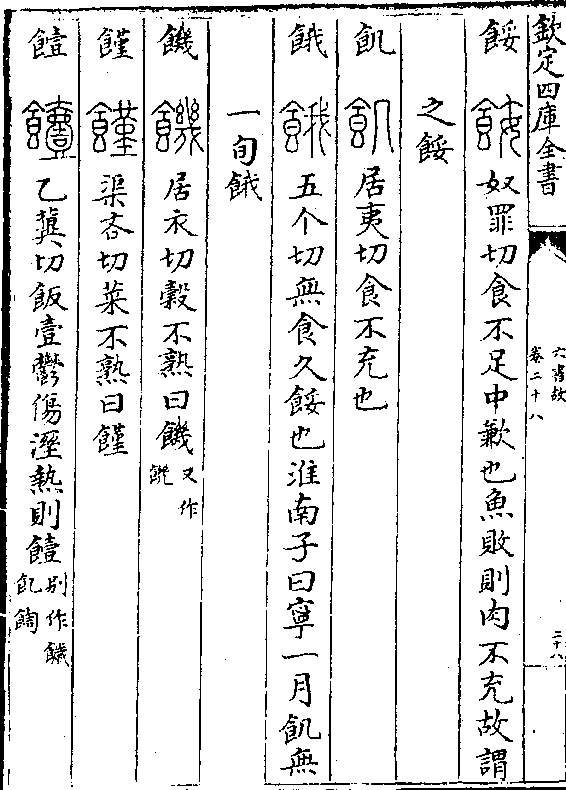 欽定四庫全書
六書故
卷二十八
二十八
餒 奴罪切食不足中歉也魚敗則肉不充故謂
之餒
飢 居夷切食不充也
餓 五个切無食久餒也淮南子曰寧一月飢無
一旬餓
饑 居衣切穀不熟曰饑又作
饉 渠吝切菜不熟曰饉
饐 乙冀切飯壹鬱傷溼熱則饐别作